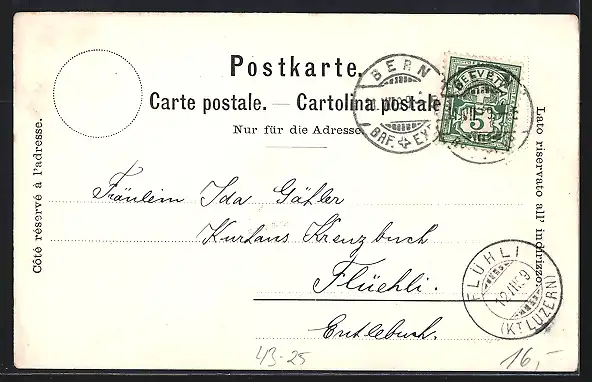 Postkarte.
Carte postale. — Cartolina postale
Nur für die Adresse
Côté réservé à l'adresse.
Lato riservato all' indirizzo.
BERN
BRF.
HELVETIA
5
Fräulein Ida Gähler
Kurhaus Kreuzbuch
Flüehli.
Entlebuch.
FLÜHLI
(KT. LUZERN)
43-25
16,-